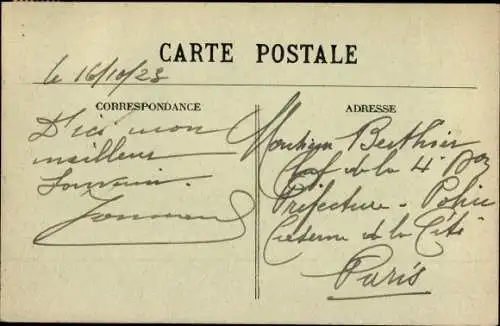 CARTE POSTALE
le 16/10/23
CORRESPONDANCE
D'ici mon
meilleur
Souvenir.
ADRESSE
Monsieur Berthier
Chef de la 4e Don
Préfecture - Police
Caserne de la Cité
Paris